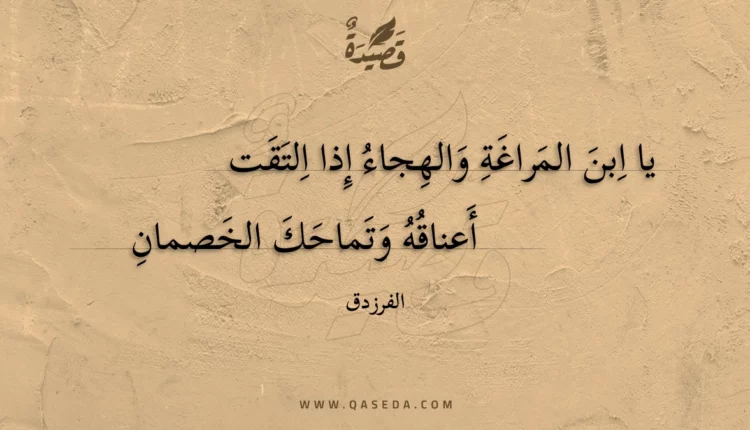 قَصِيْدَةٌ
يا اِبنَ المَراغَةِ وَالهِجاءُ إِذا اِلتَقَت
أَعناقُهُ وَتَماحَكَ الخَصمانِ
الفرزدق
WWW.QASEDA.COM